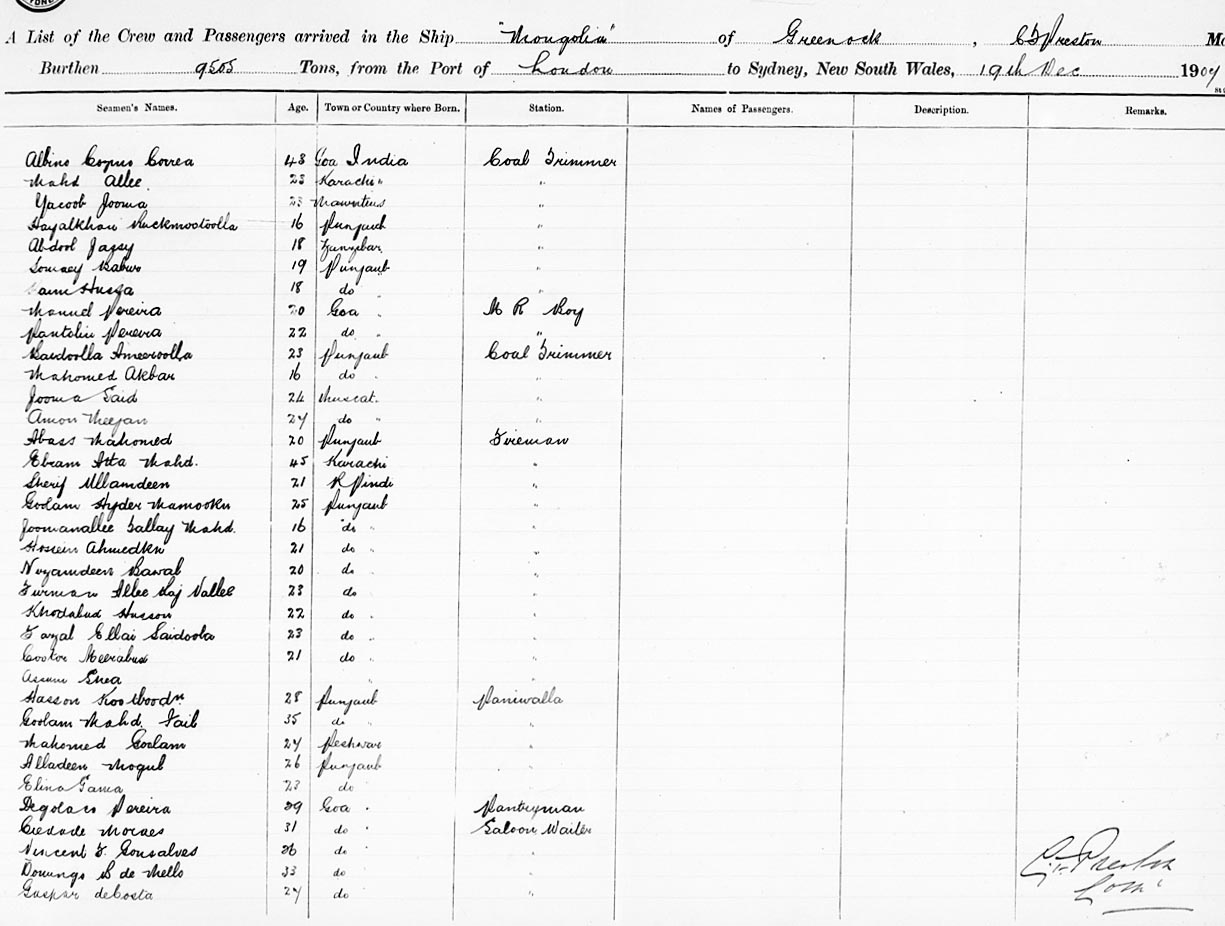 A List of the Crew and Passengers arrived in the Ship "Mongolia" of Greenock, C F Preston
Burthen 9505 Tons, from the Port of London to Sydney, New South Wales, 19th Dec 1904
Seamen's Names. Age. Town or Country where Born. Station. Names of Passengers. Description. Remarks.
Albino Correa 48 Goa India Coal Trimmer
Mahd Allee. 23 Karachi "
Yacoob Jooma 23 Mauritius "
Hayatkhan 16 Punjaub "
Abdool 18 Zanzibar "
19 Punjaub "
18 do "
Manuel Pereira 20 Goa " M R Boy
Pereira 22 do " "
Saidoolla Ameeroolla 23 Punjaub Coal Trimmer
Mahomed Akbar 16 do " "
Jooma Said 24 Muscat. "
Amon 24 do " "
Abass Mahomed 20 Punjaub Fireman
Ebram Atta Mahd. 45 Karachi "
Sherif Ullamdeen 21 R Pindi "
Goolam Hyder 25 Punjaub "
Joomanallee Mahd. 16 do " "
Hosein Ahmedkn 21 do " "
Nuzamdeen 20 do " "
Furman Allee 23 do " "
Khodabux Husson 22 do " "
Fazal Ellai Saidoola 23 do " "
21 do " "
" "
Hasson 28 Punjaub Paniwalla
Goolam Mahd. 35 do " "
Mahomed Goolam 24 Peshwar "
Alladeen Mogul 26 Punjaub "
23 do "
Pereira 29 Goa " Pantryman
Moraes 31 do " Saloon Waiter
Vincent F. Gonsalves 26 do " "
Domingo S de Mello 33 do "
Gaspar deCosta 24 do "
C. F. Preston